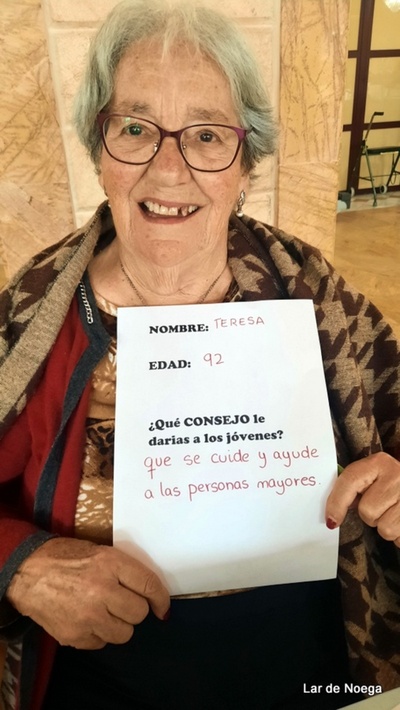 NOMBRE: TERESA
EDAD: 92
¿Qué CONSEJO le
darias a los jóvenes?
que se cuide y ayude
a las personas mayores.
Lar de Noega